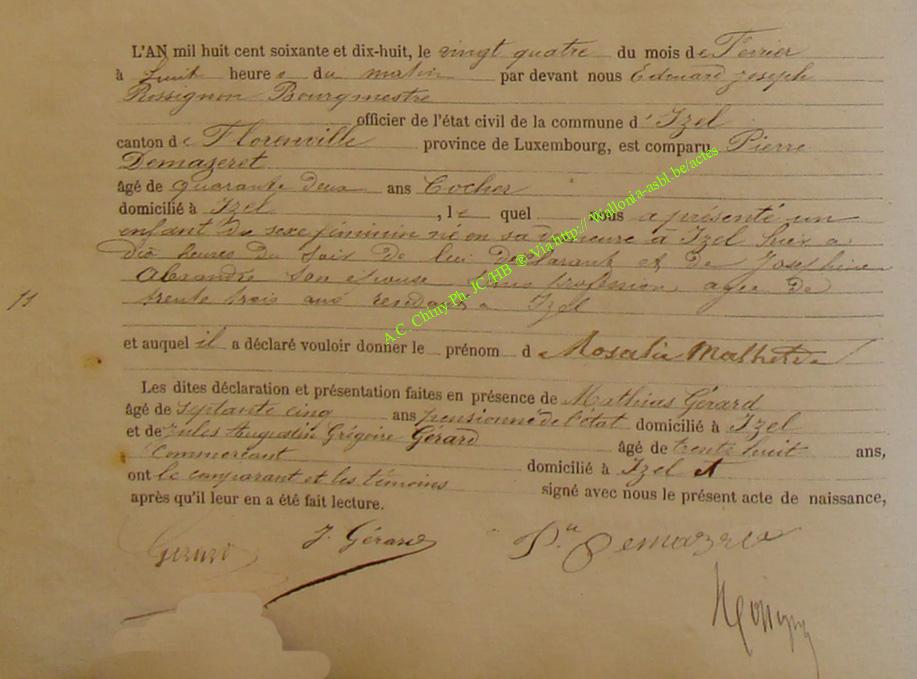 L'AN mil huit cent soixante et dix-huit, le vingt quatre du mois de Février
à huit heures du matin par devant nous Edouard Joseph
Rossignon Bourgmestre
officier de l'état civil de la commune d'Izel
canton de Florenville province de Luxembourg, est comparu Pierre
Demazeret
âgé de quarante deux ans Cocher
domicilié à Izel, le quel nous a présenté un
enfant du sexe féminin né en sa demeure à Izel hier a
dix heures du soir de lui déclarant et de Joséphine
Alexandre son épouse sans profession agée de
11
trente trois ans residant a Izel
et auquel il a déclaré vouloir donner le prénom de Rosalie
Les dites déclaration et présentation faites en présence de Mathias Gérard
âgé de septante cinq ans pensionné de l'état domicilié à Izel
et de Jules Augustin Grégoire Gérard âgé de trente huit ans,
Commercant domicilié à Izel et
ont le comparant et les témoins signé avec nous le présent acte de naissance,
après qu'il leur en a été fait lecture.
A.C. Chiny Ph. JC/HB © Via http://Wallonia-asbl.be/actes
Gerard J. Gérard